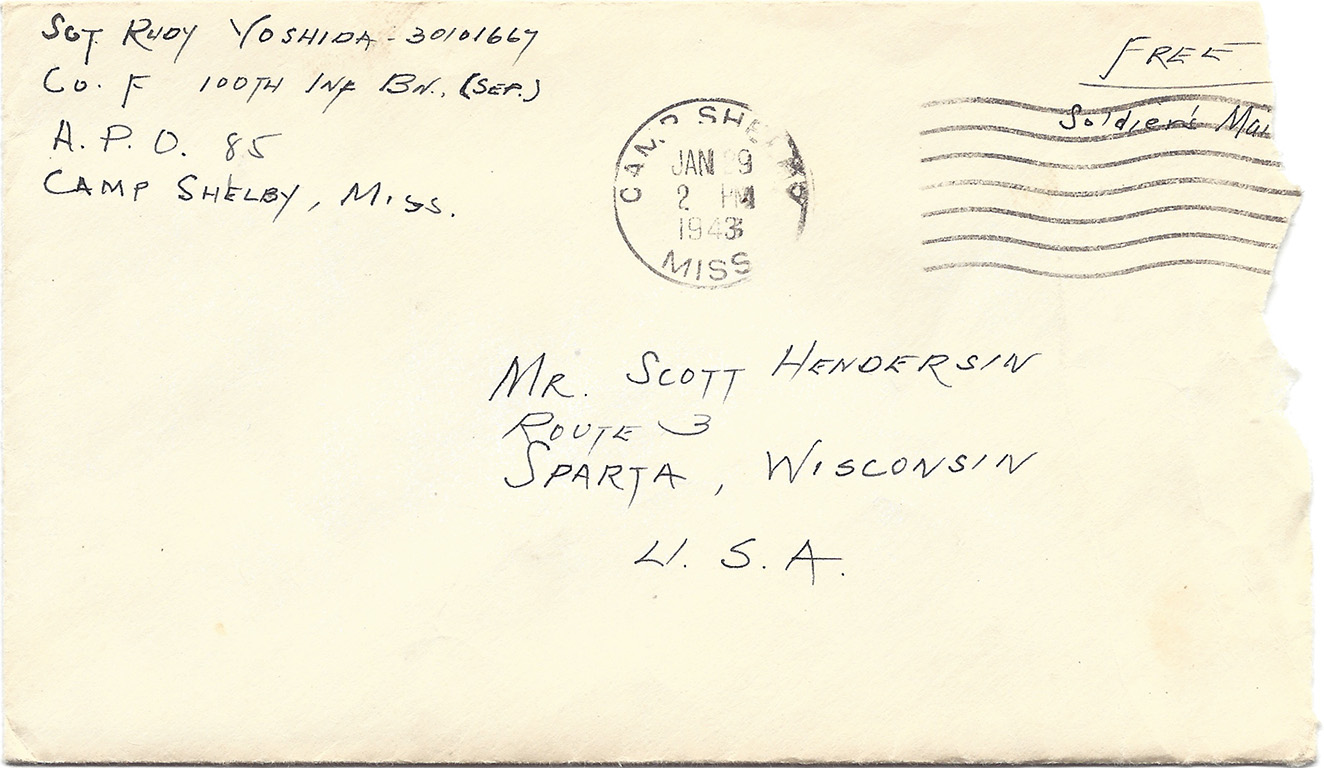 SGT. RUDY YOSHIDA - 30101667
CO. F 100TH INF BN., (SEP.)
A. P. O. 85
CAMP SHELBY, MISS.
FREE
Soldier's Mai
CAMP SHELBY
JAN 9
2 PM
1943
MISS
MR. SCOTT HENDERSIN
ROUTE 3
SPARTA, WISCONSIN
U. S. A.